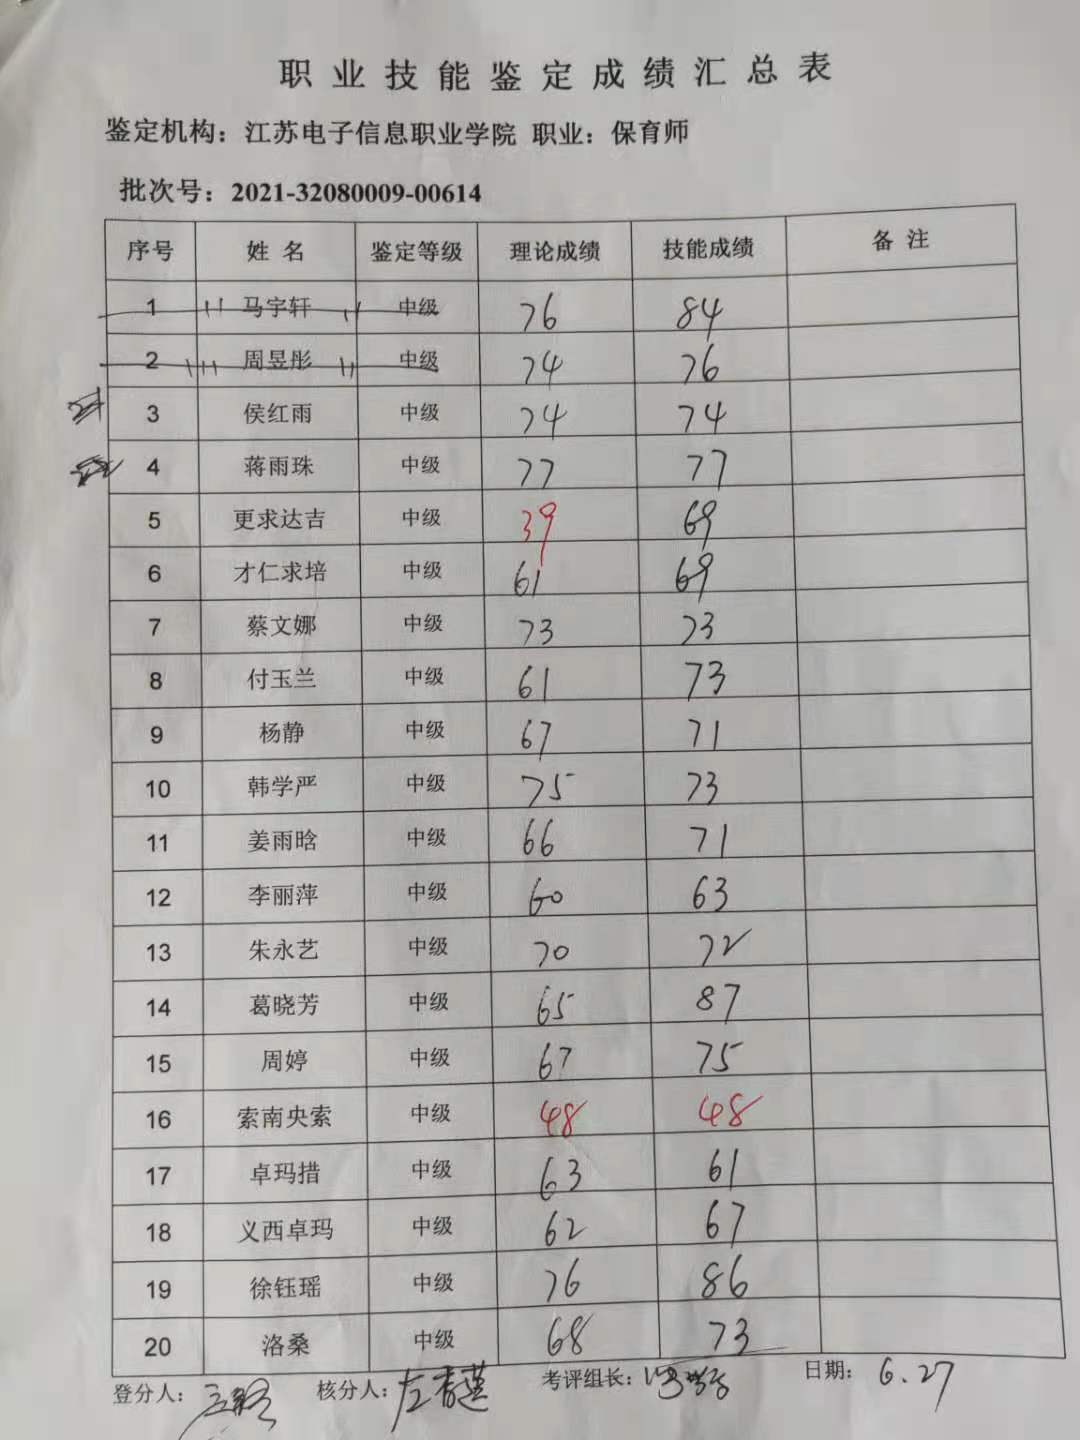 职业技能鉴定成绩汇总表
鉴定机构：江苏电子信息职业学院 职业：保育师
批次号：2021-32080009-00614
序号 姓名 鉴定等级 理论成绩 技能成绩 备注
1 马宇轩 中级 76 84
2 周昱彤 中级 74 76
3 侯红雨 中级 74 74
4 蒋雨珠 中级 77 77
5 更求达吉 中级 39 69
6 才仁求培 中级 61 69
7 蔡文娜 中级 73 73
8 付玉兰 中级 61 73
9 杨静 中级 67 71
10 韩学严 中级 75 73
11 姜雨晗 中级 66 71
12 李丽萍 中级 60 63
13 朱永艺 中级 70 72
14 葛晓芳 中级 65 87
15 周婷 中级 67 75
16 索南央索 中级 48 48
17 卓玛措 中级 63 61
18 义西卓玛 中级 62 67
19 徐钰瑶 中级 76 86
20 洛桑 中级 68 73
登分人： 核分人：左 考评组长： 日期：6.27